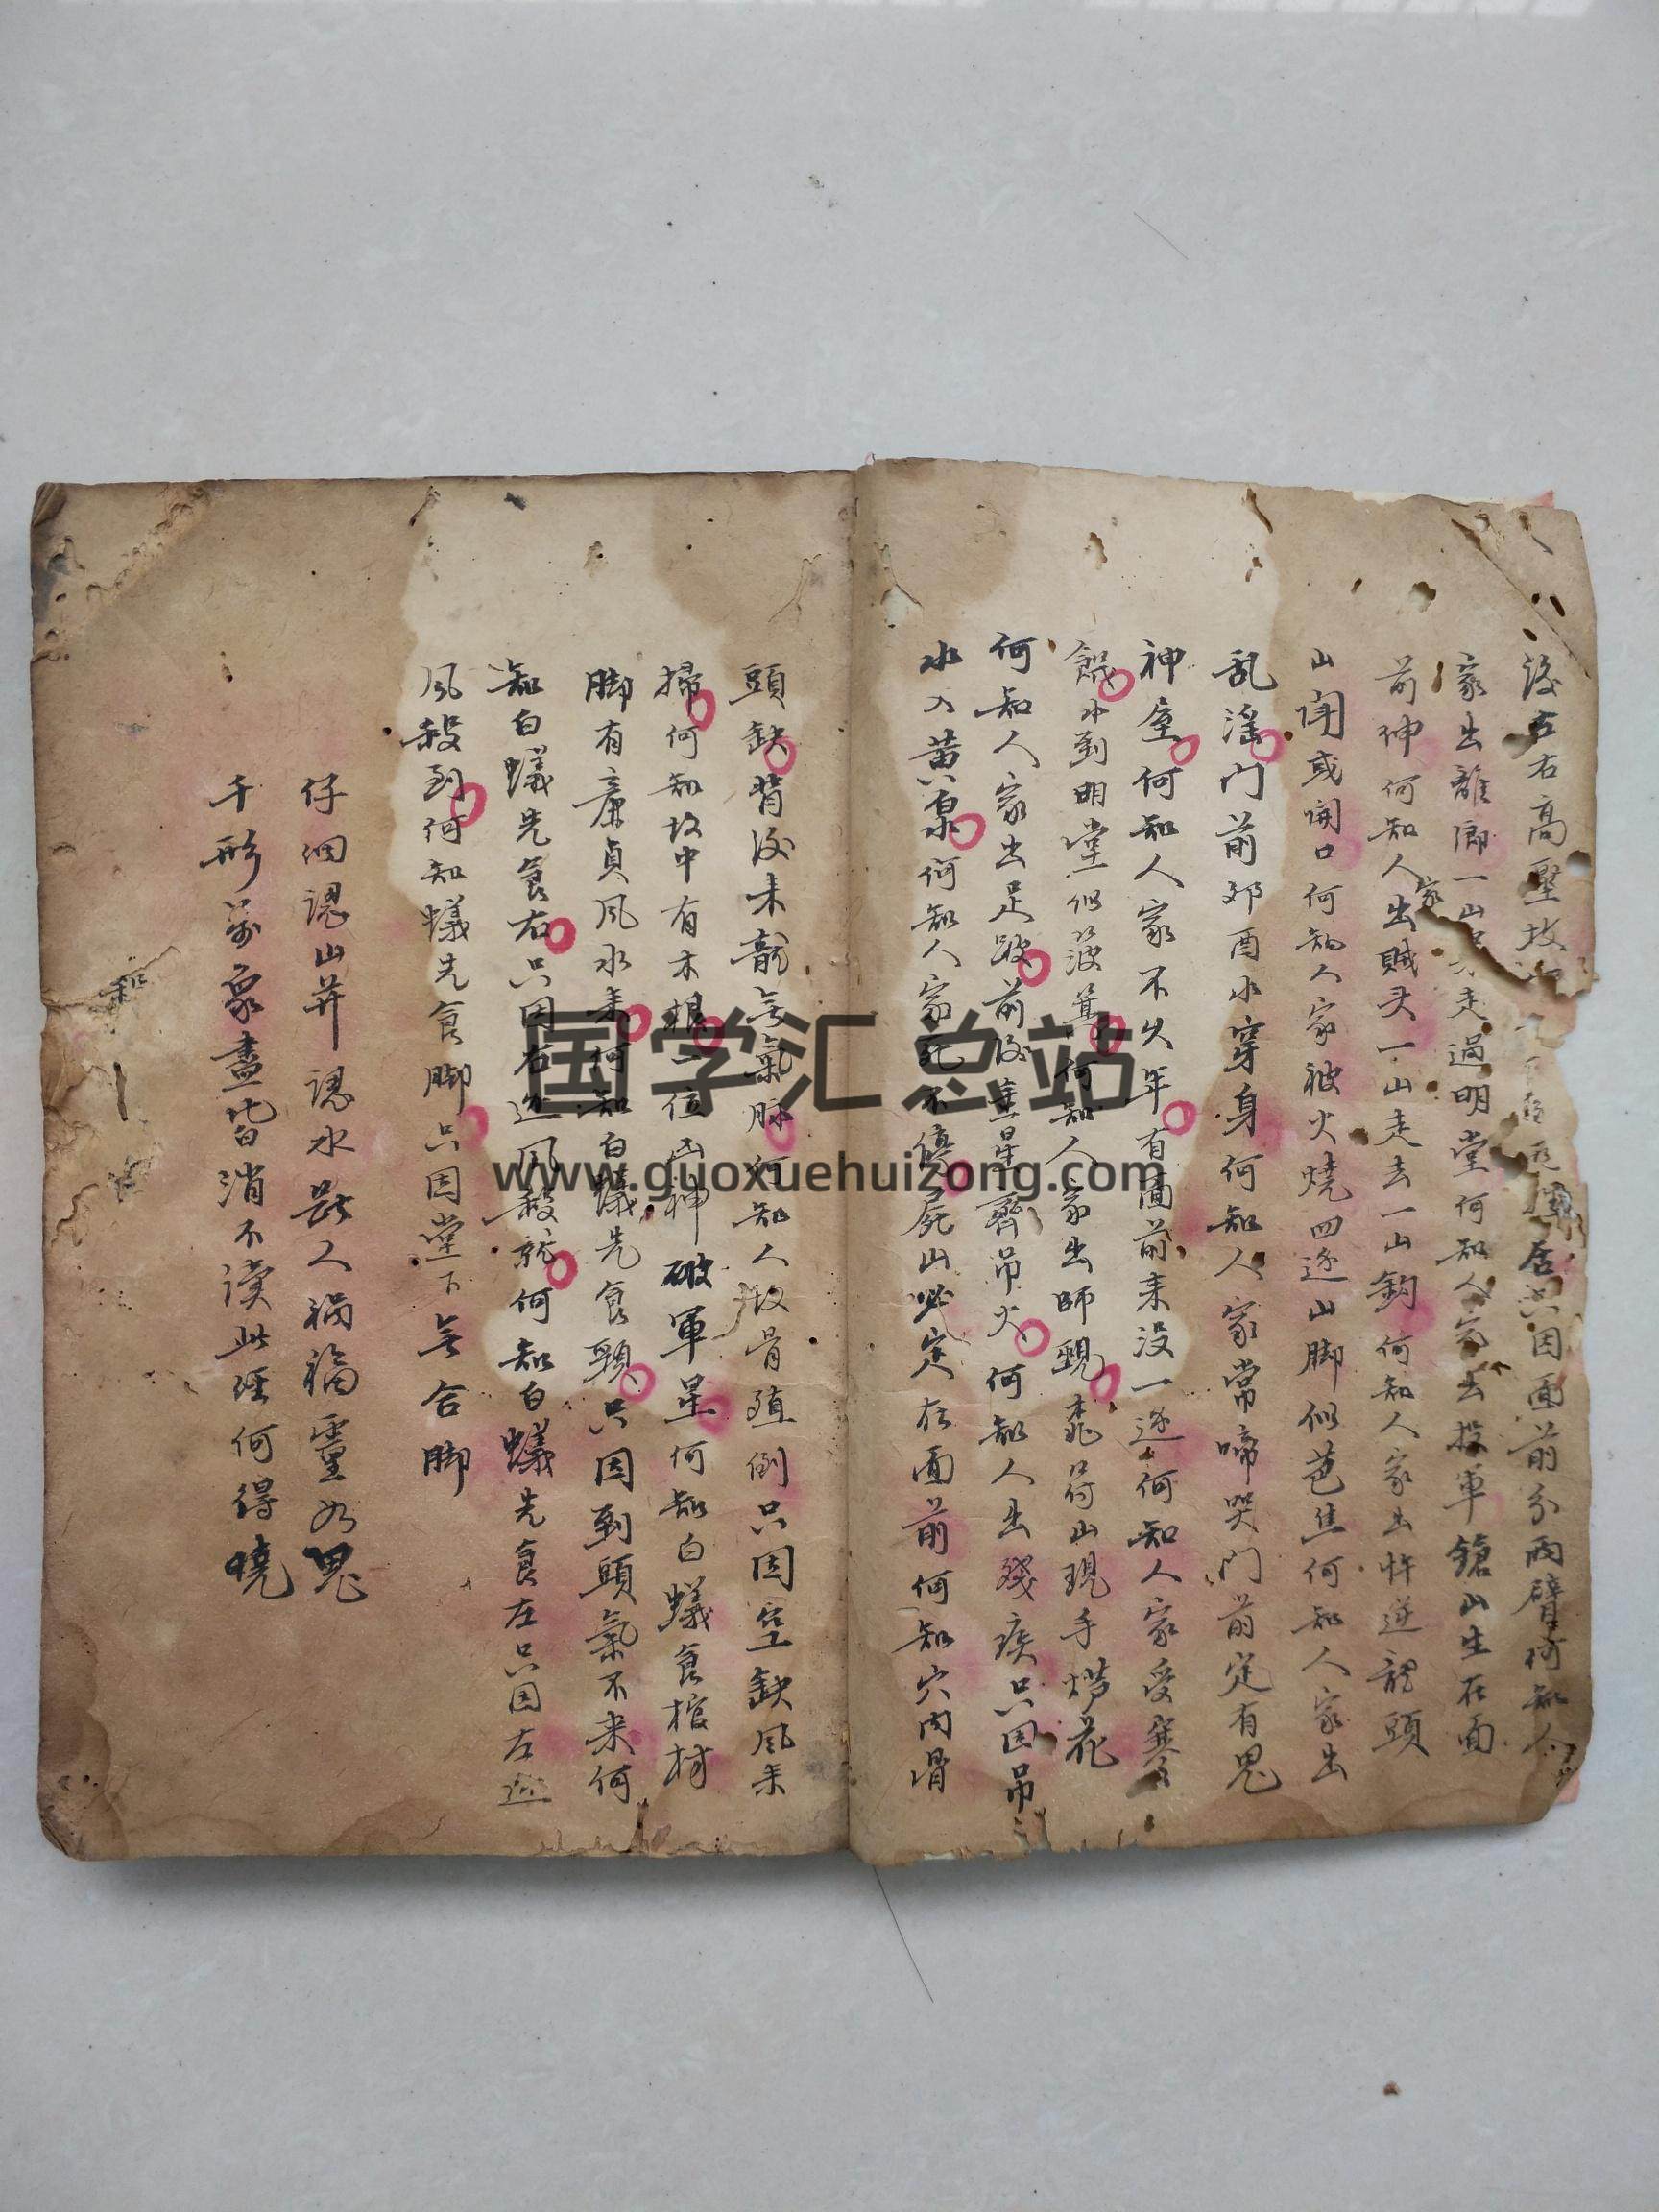 後左右高壓坟
居只因面前分两臂何知人
家出離鄉一山
走過明堂何知人家出投軍鎗山生在面
前伸何知人家出賊头一山走去一山鈎何知人家出忤逆龍頭
山開或開口何知人家被火燒四边山脚似芭焦何知人家出
乱滛门前邜酉水穿身何知人家常啼哭门前定有鬼
神屋何知人家不久年有面前来没一边何知人家受寒
餓水到明堂似簸箕何知人家出師覡符山現手㨪花
何知人家出足跛前後星齊吊火何知人出殘疾只因吊
水入黄泉何知人家死不停屍山必定在面前何知穴内骨
頭缺背後来龍無氣脉何知人坟骨殖倒只因空缺風来
掃何知坟中有木根二位凶神破軍星何知白蟻食棺材
脚有廉貞風水来何知白蟻先食顙只因到頭氣不来何
知白蟻先食右只因右边風殺就何知白蟻先食左只因左边
風殺到何知蟻先食脚只因堂下無合脚
仔细認山并認水断人禍福靈如鬼
千形萬象盡皆消不读此经何得曉
国学汇总站
www.guoxuehuizong.com